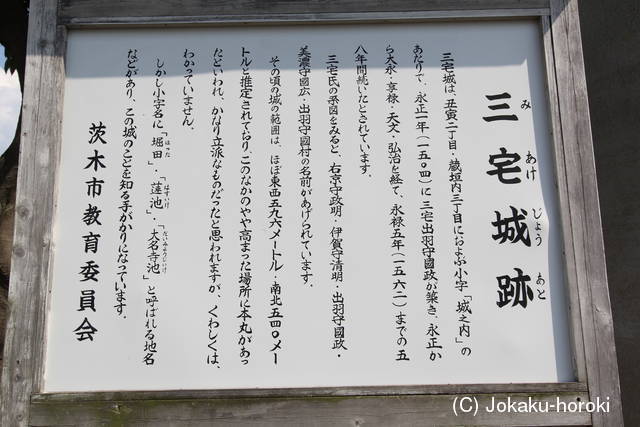 三宅城跡
みやけじょうあと
三宅城は、丑寅二丁目・蔵垣内三丁目におよぶ小字「城之内」の
あたりで、永正一年（一五〇四）に三宅出羽守国政が築き、永正か
ら大永・享禄・天文・弘治を経て、永禄五年（一五六二）までの五
八年間続いたとされています。
三宅氏の系図をみると、右京守政明・伊賀守清明・出羽守国政・
美濃守国広・出羽守国村の名前があげられています。
その頃の城の範囲は、ほぼ東西五九六メートル、南北五四〇メー
トルと推定されており、このなかのやや高まった場所に本丸があっ
たといわれ、かなり立派なものだったと思われますが、くわしくは、
わかっていません。
しかし小字名に「堀田」・「蓮池」・「大名寺池」と呼ばれる地名
などがあり、この城のことを知る手がかりになっています。
茨木市教育委員会
(C) Jokaku-horoki